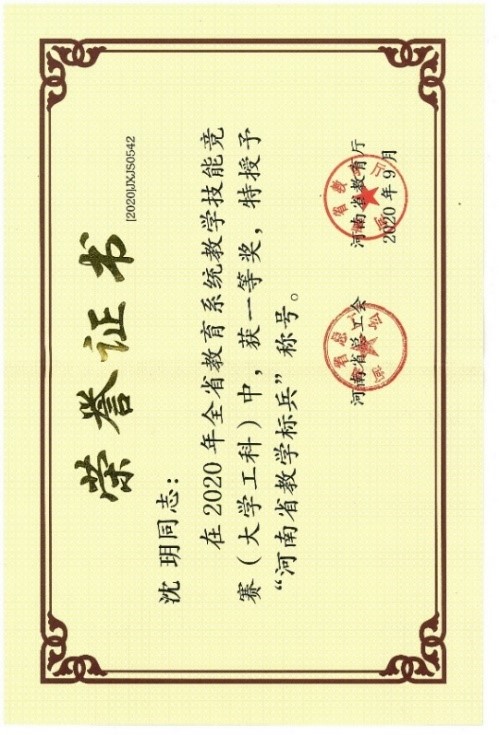 荣誉证书
[2020]JXJS0542
沈 玥同志：
在 2020 年全省教育系统教学技能竞
赛（大学工科）中，获一等奖，特授予
“河南省教学标兵”称号。
河南省总工会 河南省教育厅
2020 年 9 月